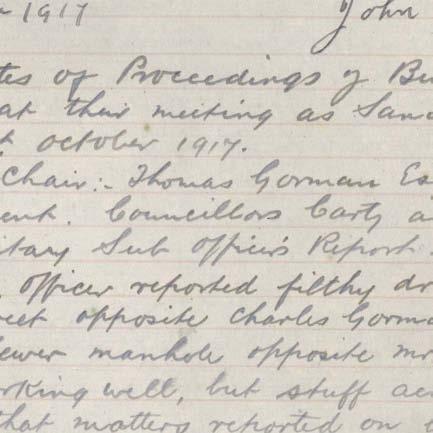 1917 John
tes of Proceedings of Bu
at their meeting as San
t October 1917.
Chair:- Thomas Gorman Es
ent. Councillors Carty a
itary Sub Officer's Report
Officer reported filthy dr
eet opposite Charles Gorma
Sewer manhole opposite Mr
rking well, but stuff ac
that matters reported on